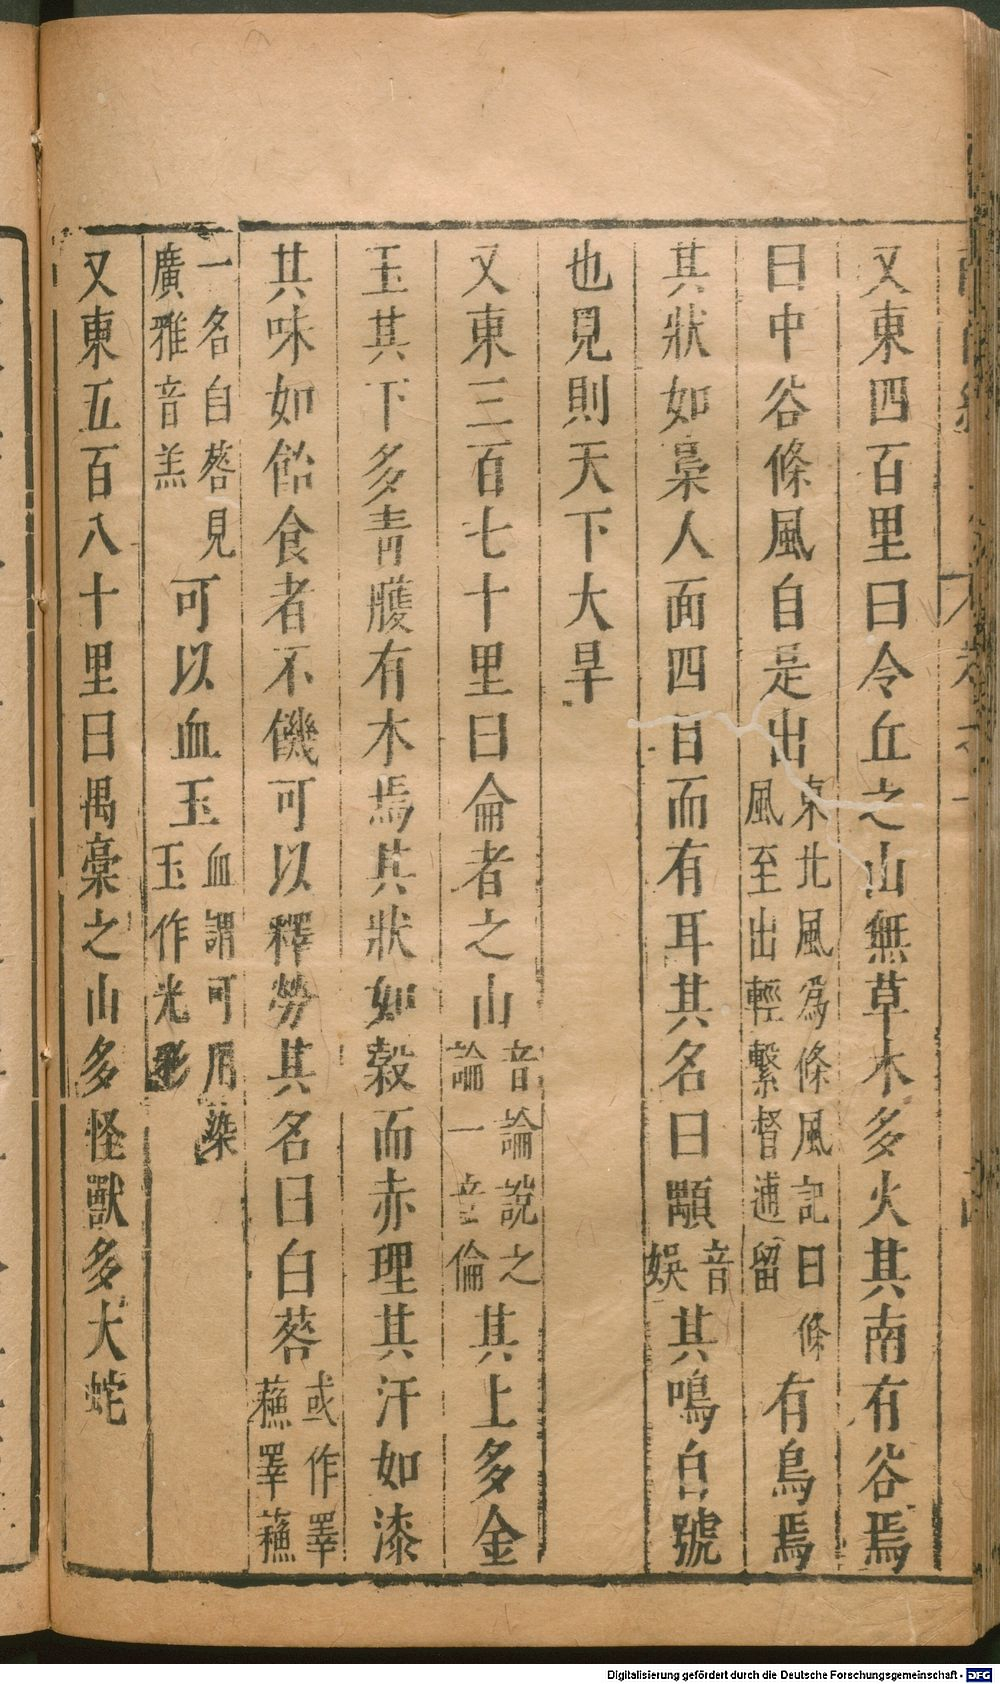 又東四百里曰令丘之山無草木多火其南有谷焉
曰中谷條風自是出東北風為條風記曰條風至出輕繫督逋留有鳥焉
其狀如梟人面四目而有耳其名曰顒音娛其鳴自號
也見則天下大旱
又東三百七十里曰侖者之山音論說之論一音倫其上多金
玉其下多青雘有木焉其狀如穀而赤理其汗如漆
其味如飴食者不饑可以釋勞其名曰白䓘或作睪蘓睪蘓
一名白䓘見廣雅音羔可以血玉血謂可用染玉作光彩
又東五百八十里曰禺稾之山多怪獸多大蛇
Digitalisierung gefördert durch die Deutsche Forschungsgemeinschaft - DFG